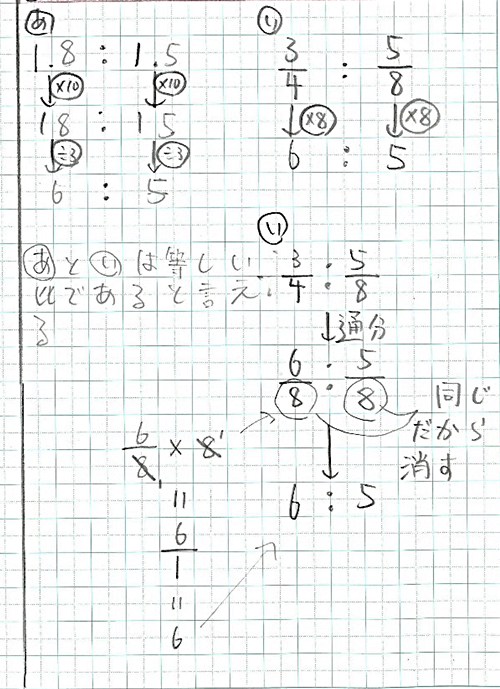 あ
1.8 : 1.5
×10 ×10
18 : 15
÷3 ÷3
6 : 5
い
3/4 : 5/8
×8 ×8
6 : 5
あといは等しい
比であると言え
る
い
3/4 : 5/8
通分
6/8 : 5/8
同じ
だから
消す
6 : 5
6/8 × 8
1 1
=
6/1
=
6